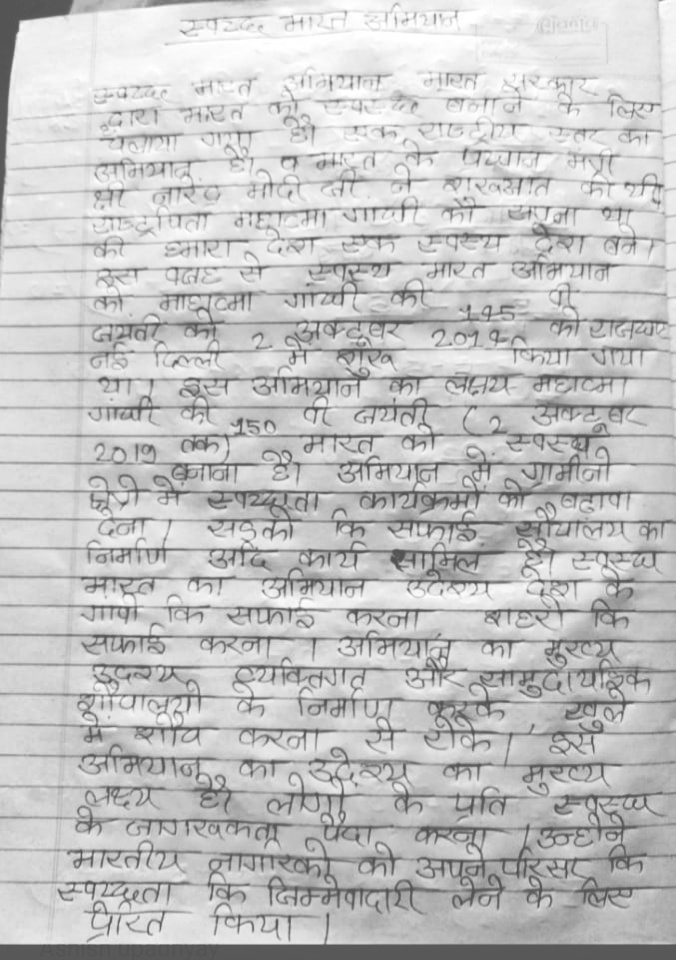 स्वच्छ भारत अभियान
स्वच्छ भारत अभियान भारत सरकार
द्वारा भारत को स्वच्छ बनाने के लिए
चलाया गया है। एक राष्ट्रीय स्तर का
अभियान है। भारत के प्रधान मंत्री
श्री नरेन्द्र मोदी जी ने शुरुआत की थी।
राष्ट्रपिता महात्मा गांधी को सपना था
की हमारा देश एक स्वस्थ देश बने।
इस वजह से स्वस्थ भारत अभियान
को माहात्मा गांधी की 145 वी
जयंती को 2 अक्टूबर 2014 को राजघाट
नई दिल्ली में शुरु किया गया
था। इस अभियान का लक्ष्य महात्मा
गांधी की 150 वी जयंती (2 अक्टूबर
2019 तक) भारत को स्वस्थ
बनाना है। अभियान में ग्रामीनो
क्षेत्रो में स्वच्छता कार्यक्रमों को बढ़ावा
देना। सड़को कि सफाई, शौचालय का
निर्माण आदि कार्य सामिल है। स्वच्छ
भारत का अभियान उदेश्य देश के
गावो कि सफाई करना शहरो कि
सफाई करना। अभियान का मुख्य
उदेश्य व्यक्तिगत और सामुदायिक
शौचालयो के निर्माण करके, खुले
में शौच करना से रोके। इस
अभियान का उदेश्य का मुख्य
लक्ष्य है। लोगो के प्रति स्वच्छ
के जागरुकता पैदा करना। उन्होंने
भारतीय नागरिको को अपने परिसर कि
स्वच्छता कि जिम्मेवादारी लेने के लिए
प्रेरित किया।
Ashish upadhyay